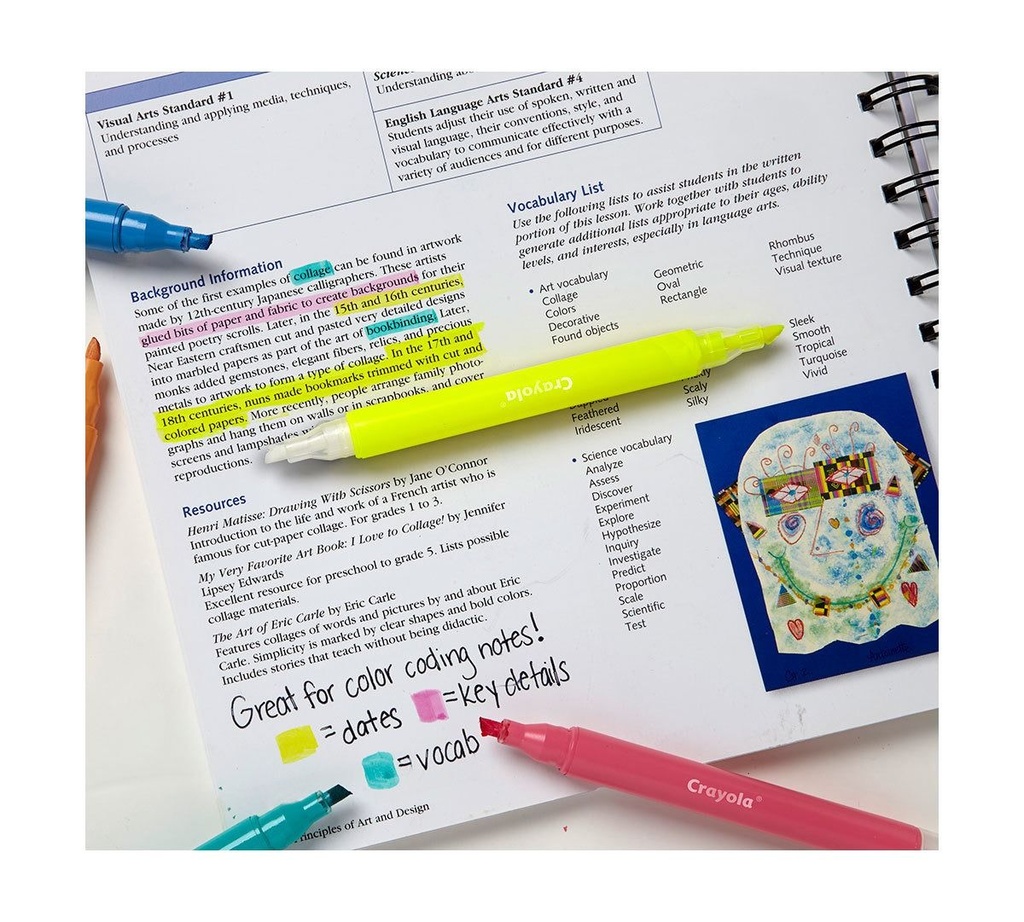 Visual Arts Standard #1
Understanding and applying media, techniques,
and processes
Understanding
English Language Arts Standard #4
Students adjust their use of spoken, written and
visual language, their conventions, style, and
vocabulary to communicate effectively with a
variety of audiences and for different purposes.
Background Information
Some of the first examples of collage can be found in artwork
made by 12th-century Japanese calligraphers. These artists
glued bits of paper and fabric to create backgrounds for their
painted poetry scrolls. Later, in the 15th and 16th centuries,
Near Eastern craftsmen cut and pasted very detailed designs
into marbled papers as part of the art of bookbinding. Later,
monks added gemstones, elegant fibers, relics, and precious
metals to artwork to form a type of collage. In the 17th and
18th centuries, nuns made bookmarks trimmed with cut and
colored papers. More recently, people arrange family photo-
graphs and hang them on walls or in scrapbooks, and cover
screens and lampshades
reproductions.
Resources
Henri Matisse: Drawing With Scissors by Jane O'Connor
Introduction to the life and work of a French artist who is
famous for cut-paper collage. For grades 1 to 3.
My Very Favorite Art Book: I Love to Collage! by Jennifer
Lipsey Edwards
Excellent resource for preschool to grade 5. Lists possible
collage materials.
The Art of Eric Carle by Eric Carle
Features collages of words and pictures by and about Eric
Carle. Simplicity is marked by clear shapes and bold colors.
Includes stories that teach without being didactic.
Great for color coding notes!
= dates =key details
= vocab
Principles of Art and Design
Vocabulary List
Use the following lists to assist students in the written
portion of this lesson. Work together with students to
generate additional lists appropriate to their ages, ability
levels, and interests, especially in language arts.
• Art vocabulary
Collage
Colors
Decorative
Found objects
Geometric
Oval
Rectangle
Rhombus
Technique
Visual texture
Dappled
Feathered
Iridescent
Scaly
Silky
Sleek
Smooth
Tropical
Turquoise
Vivid
• Science vocabulary
Analyze
Assess
Discover
Experiment
Explore
Hypothesize
Inquiry
Investigate
Predict
Proportion
Scale
Scientific
Test
Crayola®
Crayola®